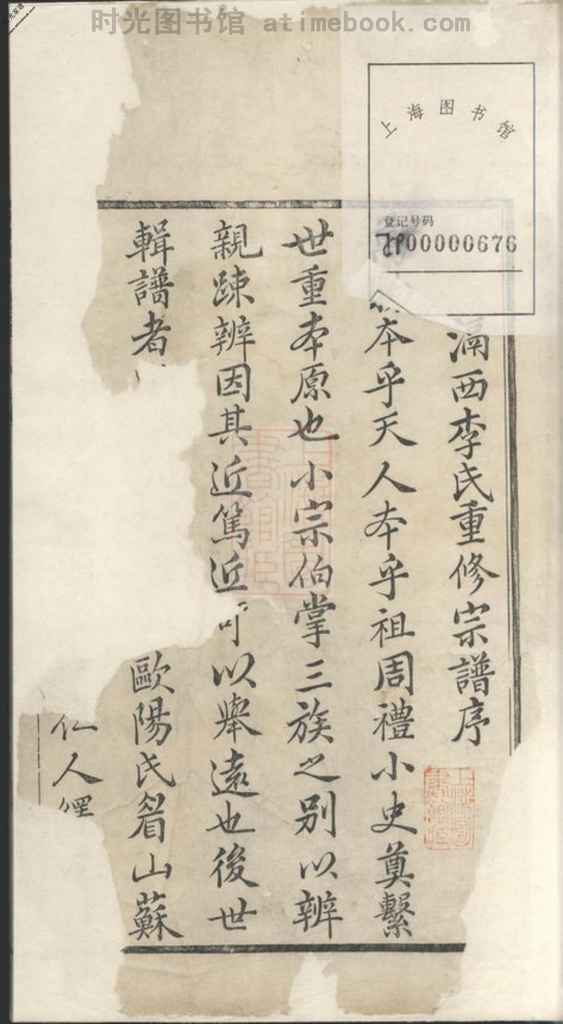 时光图书馆 atimebook.com
上海图书馆
登记号码
00000676
西李氏重修宗譜序
本乎天人本乎祖周禮小史奠繫
世重本原也小宗伯掌三族之別以辨
親疎辨因其近篤近可以舉遠也後世
輯譜者
歐陽氏眉山蘇
仁人